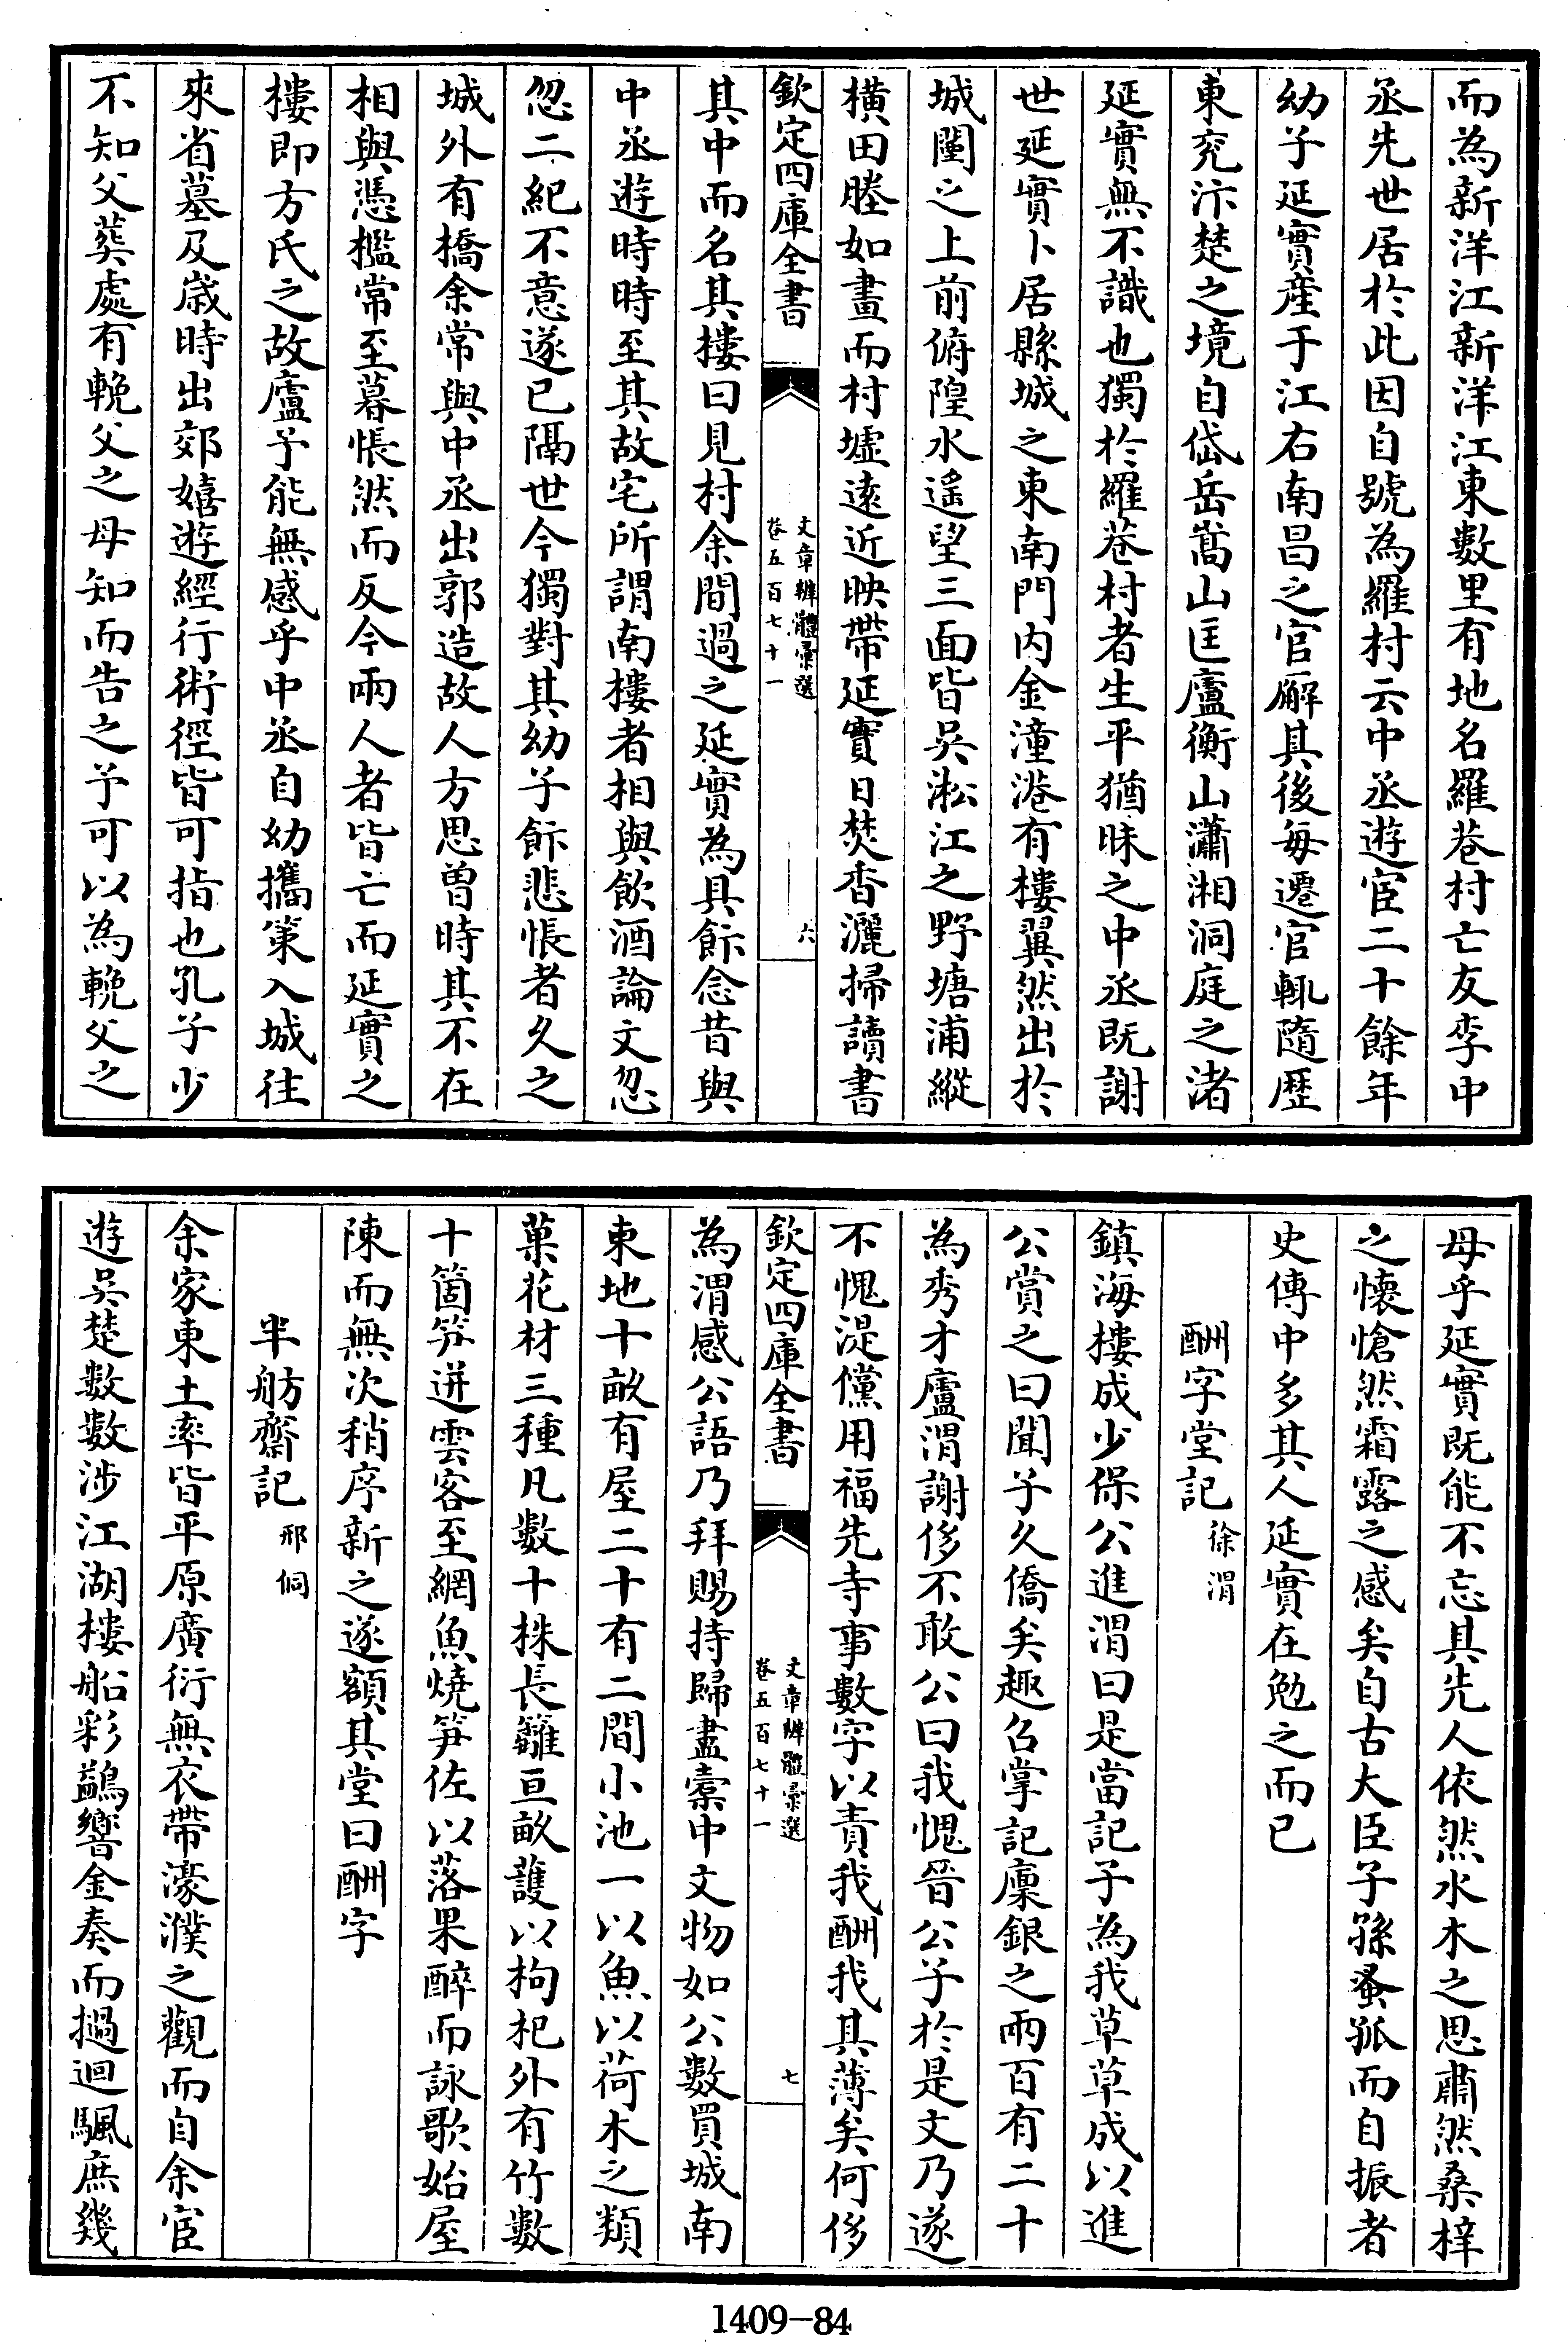 而為新洋江新洋江東數里有地名羅巷村亡友李中
丞先世居於此因自號為羅村云中丞遊宦二十餘年
幼子延實産于江右南昌之官廨其後每遷官輒隨歴
東兖汴楚之境自岱岳嵩山匡廬衡山瀟湘洞庭之渚
延實無不識也獨於羅巷村者生平猶昧之中丞既謝
世延實卜居縣城之東南門内金潼港有樓翼然出於
城闉之上前俯隍水遥望三面皆吳淞江之野塘浦縱
橫田塍如畫而村墟遠近映帶延實日焚香灑掃讀書
欽定四庫全書
文章辨體彚選
卷五百七十一
六
其中而名其樓曰見村余間過之延實為具餅念昔與
中丞遊時時至其故宅所謂南樓者相與飲酒論文忽
忽二紀不意遂已隔世今獨對其幼子餅悲悵者久之
城外有橋余常與中丞出郭造故人方思曾時其不在
相與憑檻常至暮悵然而反今兩人者皆亡而延實之
樓即方氏之故廬予能無感乎中丞自幼攜策入城往
來省墓及歲時出郊嬉遊經行術徑皆可指也孔子少
不知父葬處有輓父之母知而告之予可以為輓父之
母乎延實既能不忘其先人依然水木之思肅然桑梓
之懷愴然霜露之感矣自古大臣子孫蚤孤而自振者
史傳中多其人延實在勉之而已
酬字堂記 徐渭
鎮海樓成少保公進渭曰是當記子為我草草成以進
公賞之曰聞子久僑矣趣召掌記廩銀之兩百有二十
為秀才廬渭謝侈不敢公曰我愧晉公子於是文乃遂
不愧湜儻用福先寺事數字以責我酬我其薄矣何侈
欽定四庫全書
文章辨體彚選
卷五百七十一
七
為渭感公語乃拜賜持歸盡橐中文物如公數買城南
東地十畝有屋二十有二間小池一以魚以荷木之類
菓花材三種凡數十株長籬亘畝護以枸杞外有竹數
十箇笋迸雲客至網魚燒笋佐以落果醉而詠歌始屋
陳而無次稍序新之遂額其堂曰酬字
半舫齋記 邢侗
余家東土率皆平原廣衍無衣帶濠濮之觀而自余宦
遊吳楚數數涉江湖樓船彩鷁響金奏而撾迴颿庶幾
1409-84